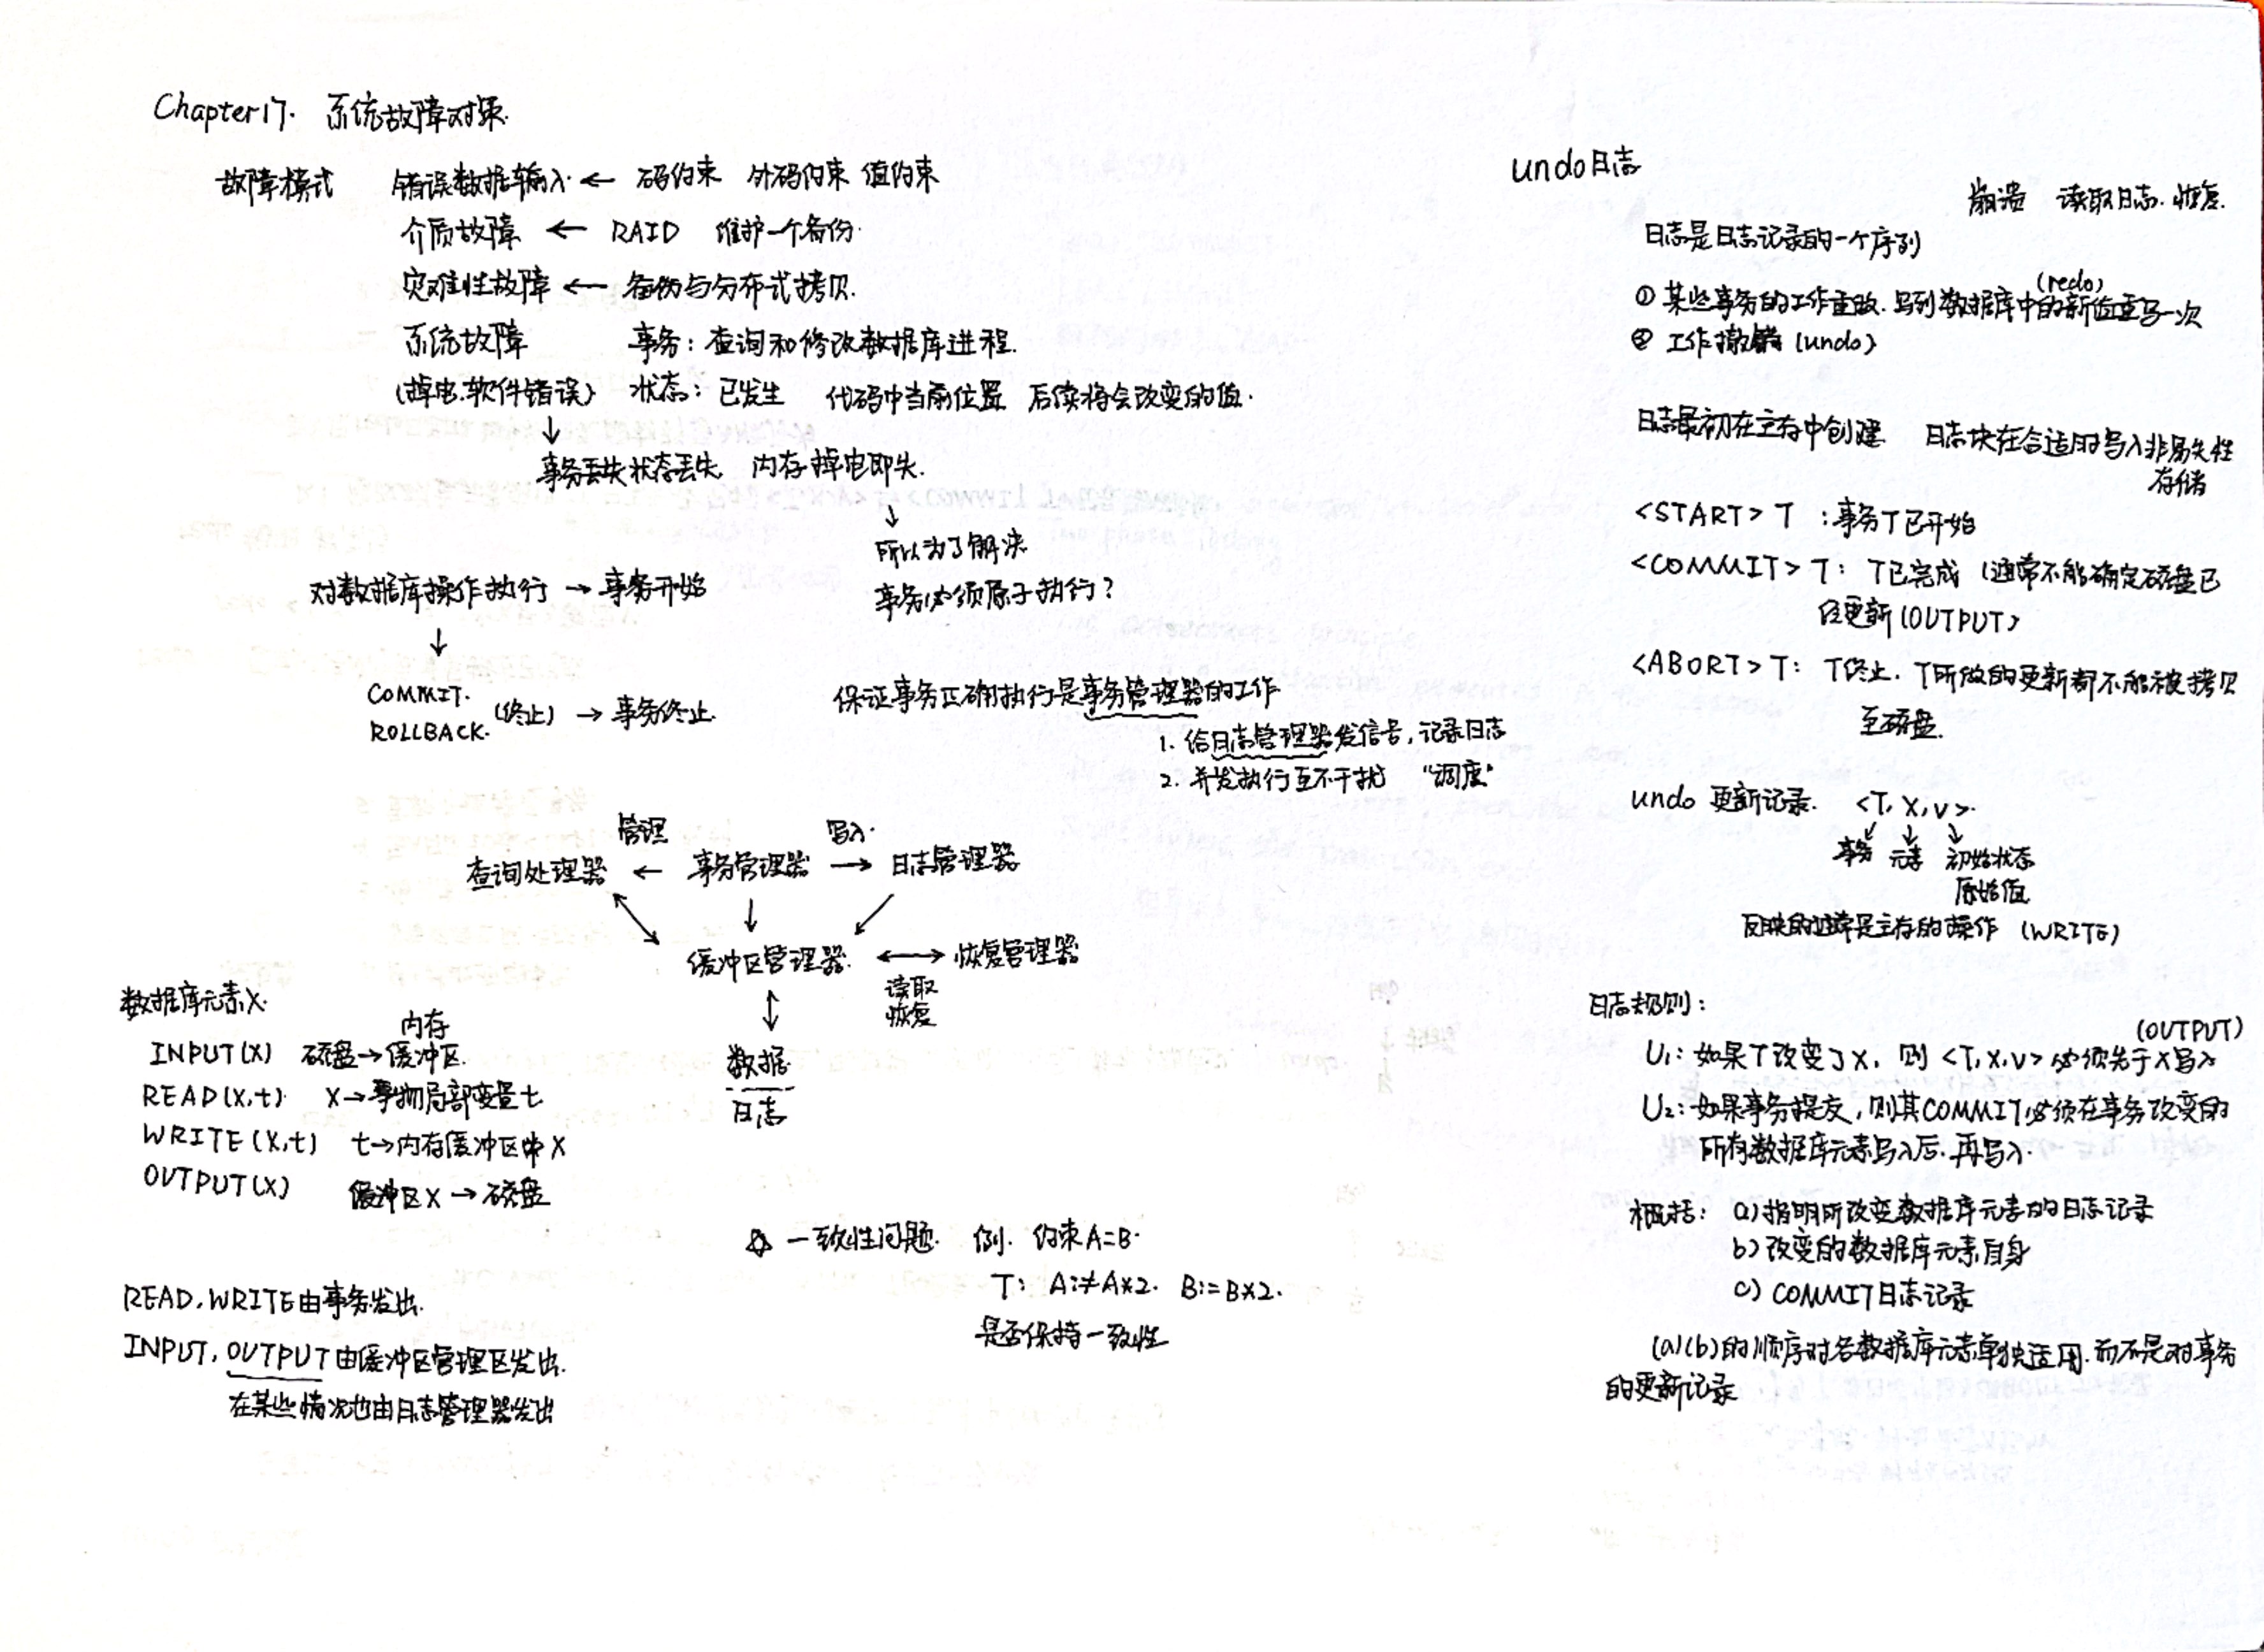 Chapter17. 系统故障对策.
故障模式 错误数据输入. ← 码约束 外码约束 值约束
介质故障 ← RAID 维护一个备份.
灾难性故障 ← 备份与分布式拷贝.
系统故障 事务: 查询和修改数据库进程.
(掉电.软件错误) 状态: 已发生 代码中当前位置 后续将会改变的值.
↓
事务丢失状态丢失, 内存掉电即失.
↓
所以为了解决
事务必须原子执行?
对数据库操作执行 → 事务开始
↓
COMMIT.
ROLLBACK. (终止) → 事务终止.
保证事务正确执行是事务管理器的工作.
1. 给日志管理器发信号, 记录日志
2. 并发执行互不干扰 "调度"
管理 写入.
查询处理器 ← 事务管理器 → 日志管理器
缓冲区管理器. ↔ 恢复管理器
读取
恢复
数据
日志
数据库元素X.
内存
INPUT(X) 磁盘→缓冲区.
READ(X,t). X→事物局部变量t
WRITE(X,t) t→内存缓冲区中X
OUTPUT(X) 缓冲区X→磁盘
READ, WRITE由事务发出.
INPUT, OUTPUT由缓冲区管理区发出.
在某些情况也由日志管理器发出
☆ 一致性问题. 例. 约束A=B.
T: A:=A×2. B:=B×2.
是否保持一致性
undo日志
崩溃 读取日志. 恢复.
日志是日志记录的一个序列
(redo)
① 某些事务的工作重做. 写到数据库中的新值重写一次
② 工作撤销 (undo)
日志最初在主存中创建 日志块在合适时写入非易失性
存储
<START> T : 事务T已开始
<COMMIT> T: T已完成 (通常不能确定磁盘已
经更新(OUTPUT)
<ABORT> T: T终止. T所做的更新都不能被拷贝
至磁盘.
undo 更新记录. <T, X, V>.
事务 元素 初始状态
原始值
反映的通常是主存的操作 (WRITE)
日志规则:
(OUTPUT)
U1: 如果T改变了X, 则 <T,X,V> 必须先于X写入
U2: 如果事务提交, 则其COMMIT必须在事务改变的
所有数据库元素写入后.再写入.
概括: a)指明所改变数据库元素的日志记录
b)改变的数据库元素自身
c) COMMIT日志记录
(a)(b)的顺序对各数据库元素单独适用.而不是对事务
的更新记录